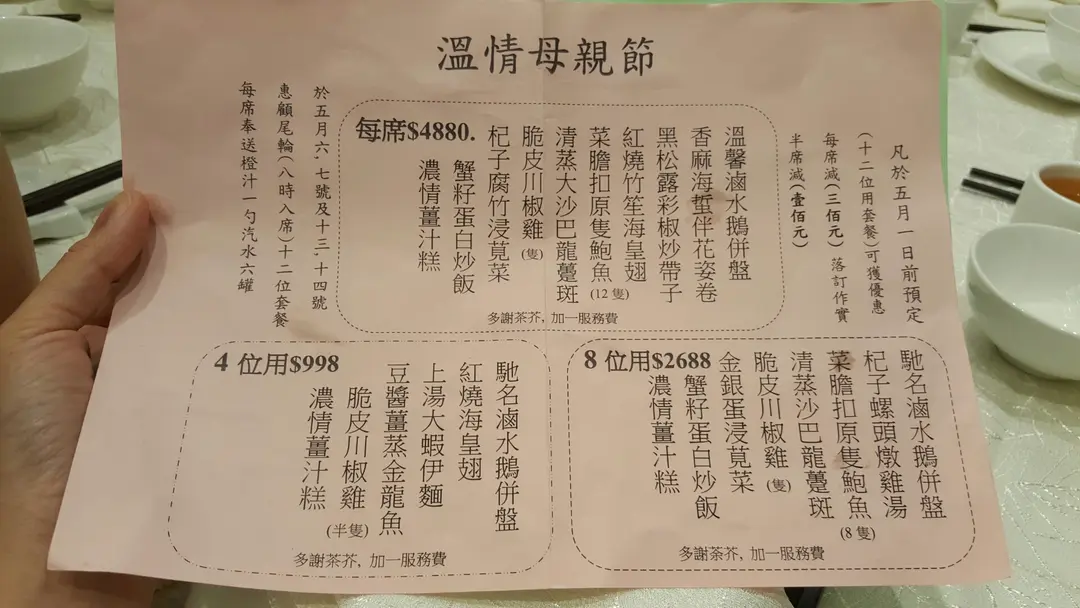 溫情母親節
凡於五月一日前預定
(十二位用套餐)可獲優惠
每席減(三佰元) 落訂作實
半席減(壹佰元)
每席$4880.
溫馨滷水鵝併盤
香麻海蜇伴花姿卷
黑松露彩椒炒帶子
紅燒竹笙海皇翅
菜膽扣原隻鮑魚(12隻)
清蒸大沙巴龍躉斑
脆皮川椒雞(隻)
杞子腐竹浸莧菜
蟹籽蛋白炒飯
濃情薑汁糕
多謝茶芥, 加一服務費
於五月六、七號及十三、十四號
惠顧尾輪(八時入席)十二位套餐
每席奉送橙汁一勺汽水六罐
8 位用$2688
馳名滷水鵝併盤
杞子螺頭燉雞湯
菜膽扣原隻鮑魚(8隻)
清蒸沙巴龍躉斑
脆皮川椒雞(隻)
金銀蛋浸莧菜
蟹籽蛋白炒飯
濃情薑汁糕
多謝茶芥, 加一服務費
4 位用$998
馳名滷水鵝併盤
紅燒海皇翅
上湯大蝦伊麵
豆醬薑蒸金龍魚
脆皮川椒雞(半隻)
濃情薑汁糕
多謝茶芥, 加一服務費